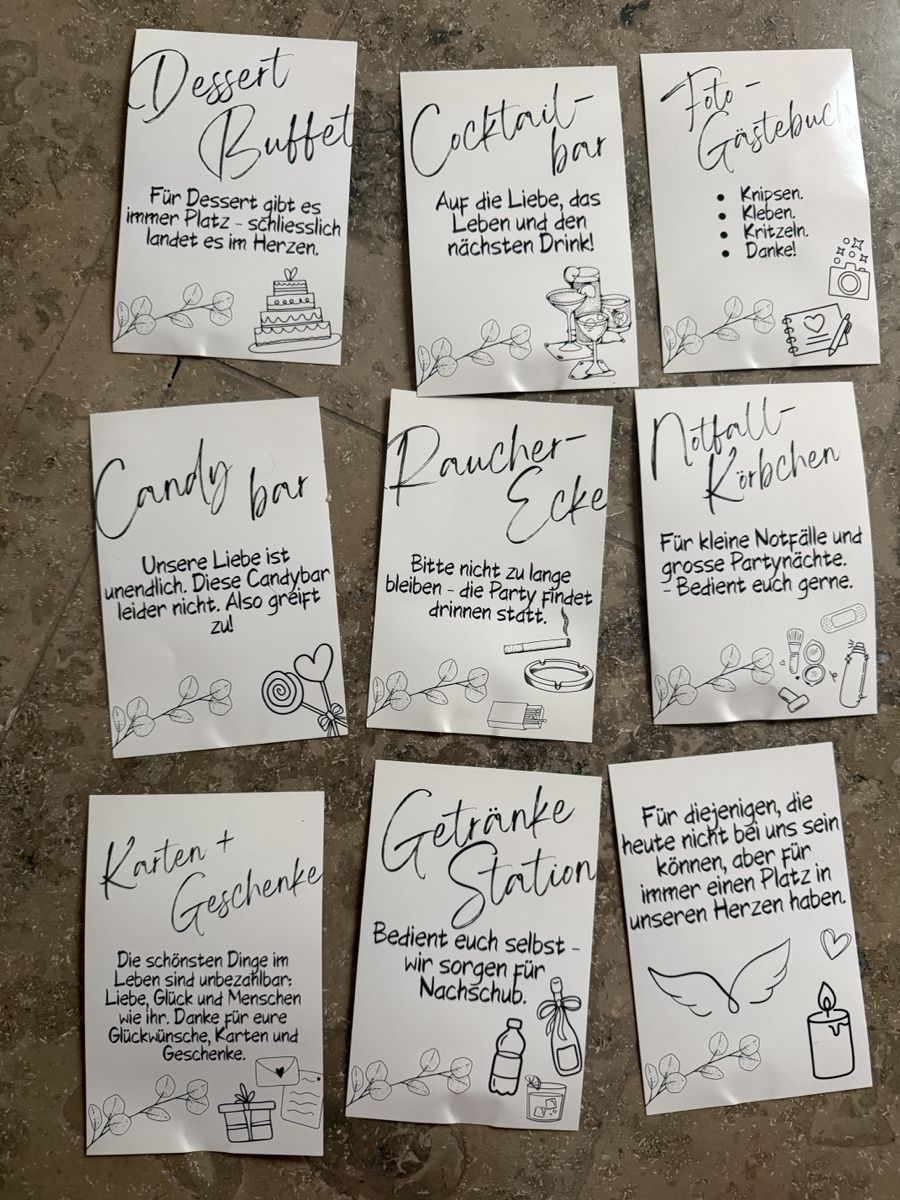 Dessert
Buffet
Für Dessert gibt es
immer Platz - schliesslich
landet es im Herzen.
Cocktail-
bar
Auf die Liebe, das
Leben und den
nächsten Drink!
Foto-
Gästebuch
• Knipsen.
• Kleben.
• Kritzeln.
• Danke!
Candy bar
Unsere Liebe ist
unendlich. Diese Candybar
leider nicht. Also greift
zu!
Raucher-
Ecke
Bitte nicht zu lange
bleiben - die Party findet
drinnen statt.
Notfall-
Körbchen
Für kleine Notfälle und
grosse Partynächte.
- Bedient euch gerne.
Karten +
Geschenke
Die schönsten Dinge im
Leben sind unbezahlbar:
Liebe, Glück und Menschen
wie ihr. Danke für eure
Glückwünsche, Karten und
Geschenke.
Getränke
Station
Bedient euch selbst -
wir sorgen für
Nachschub.
Für diejenigen, die
heute nicht bei uns sein
können, aber für
immer einen Platz in
unseren Herzen haben.